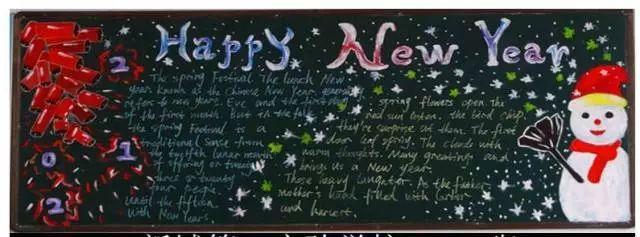 Happy New Year
2
0
1
2
The Spring Festival The lunch New
year known as the Chinese New Year generally
refers to new years. Eve and the first day
of the first month. But in the folk
the Spring Festival is a
traditional sense from
the twelfth lunar month
or
three or twenty
four people
until the fifteen
with New Years.
spring flowers open. The
red sun listen. the bird chip.
they're surprise at them. The first
door leaf spring. The clouds with
warm thoughts. Many greetings and
brings us a New year
These laugator. As the father
mother's hand filled with
and harvest.